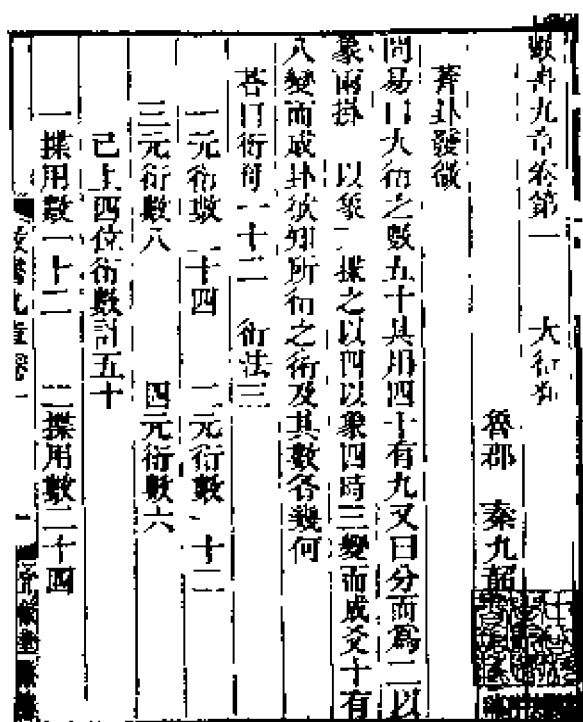 數書九章卷第一　大衍類
魯郡　秦九韶
蓍卦發微
問易曰大衍之數五十其用四十有九又曰分而為二以
象兩掛　以象　揲之以四以象四時三變而成爻十有
八變而成卦欲知所衍之術及其數各幾何
荅曰衍母一十二　衍法三
一元衍數二十四　二元衍數一十二
三元衍數八　四元衍數六
已上四位衍數計五十
一揲用數一十二　二揲用數二十四
數書九章卷一